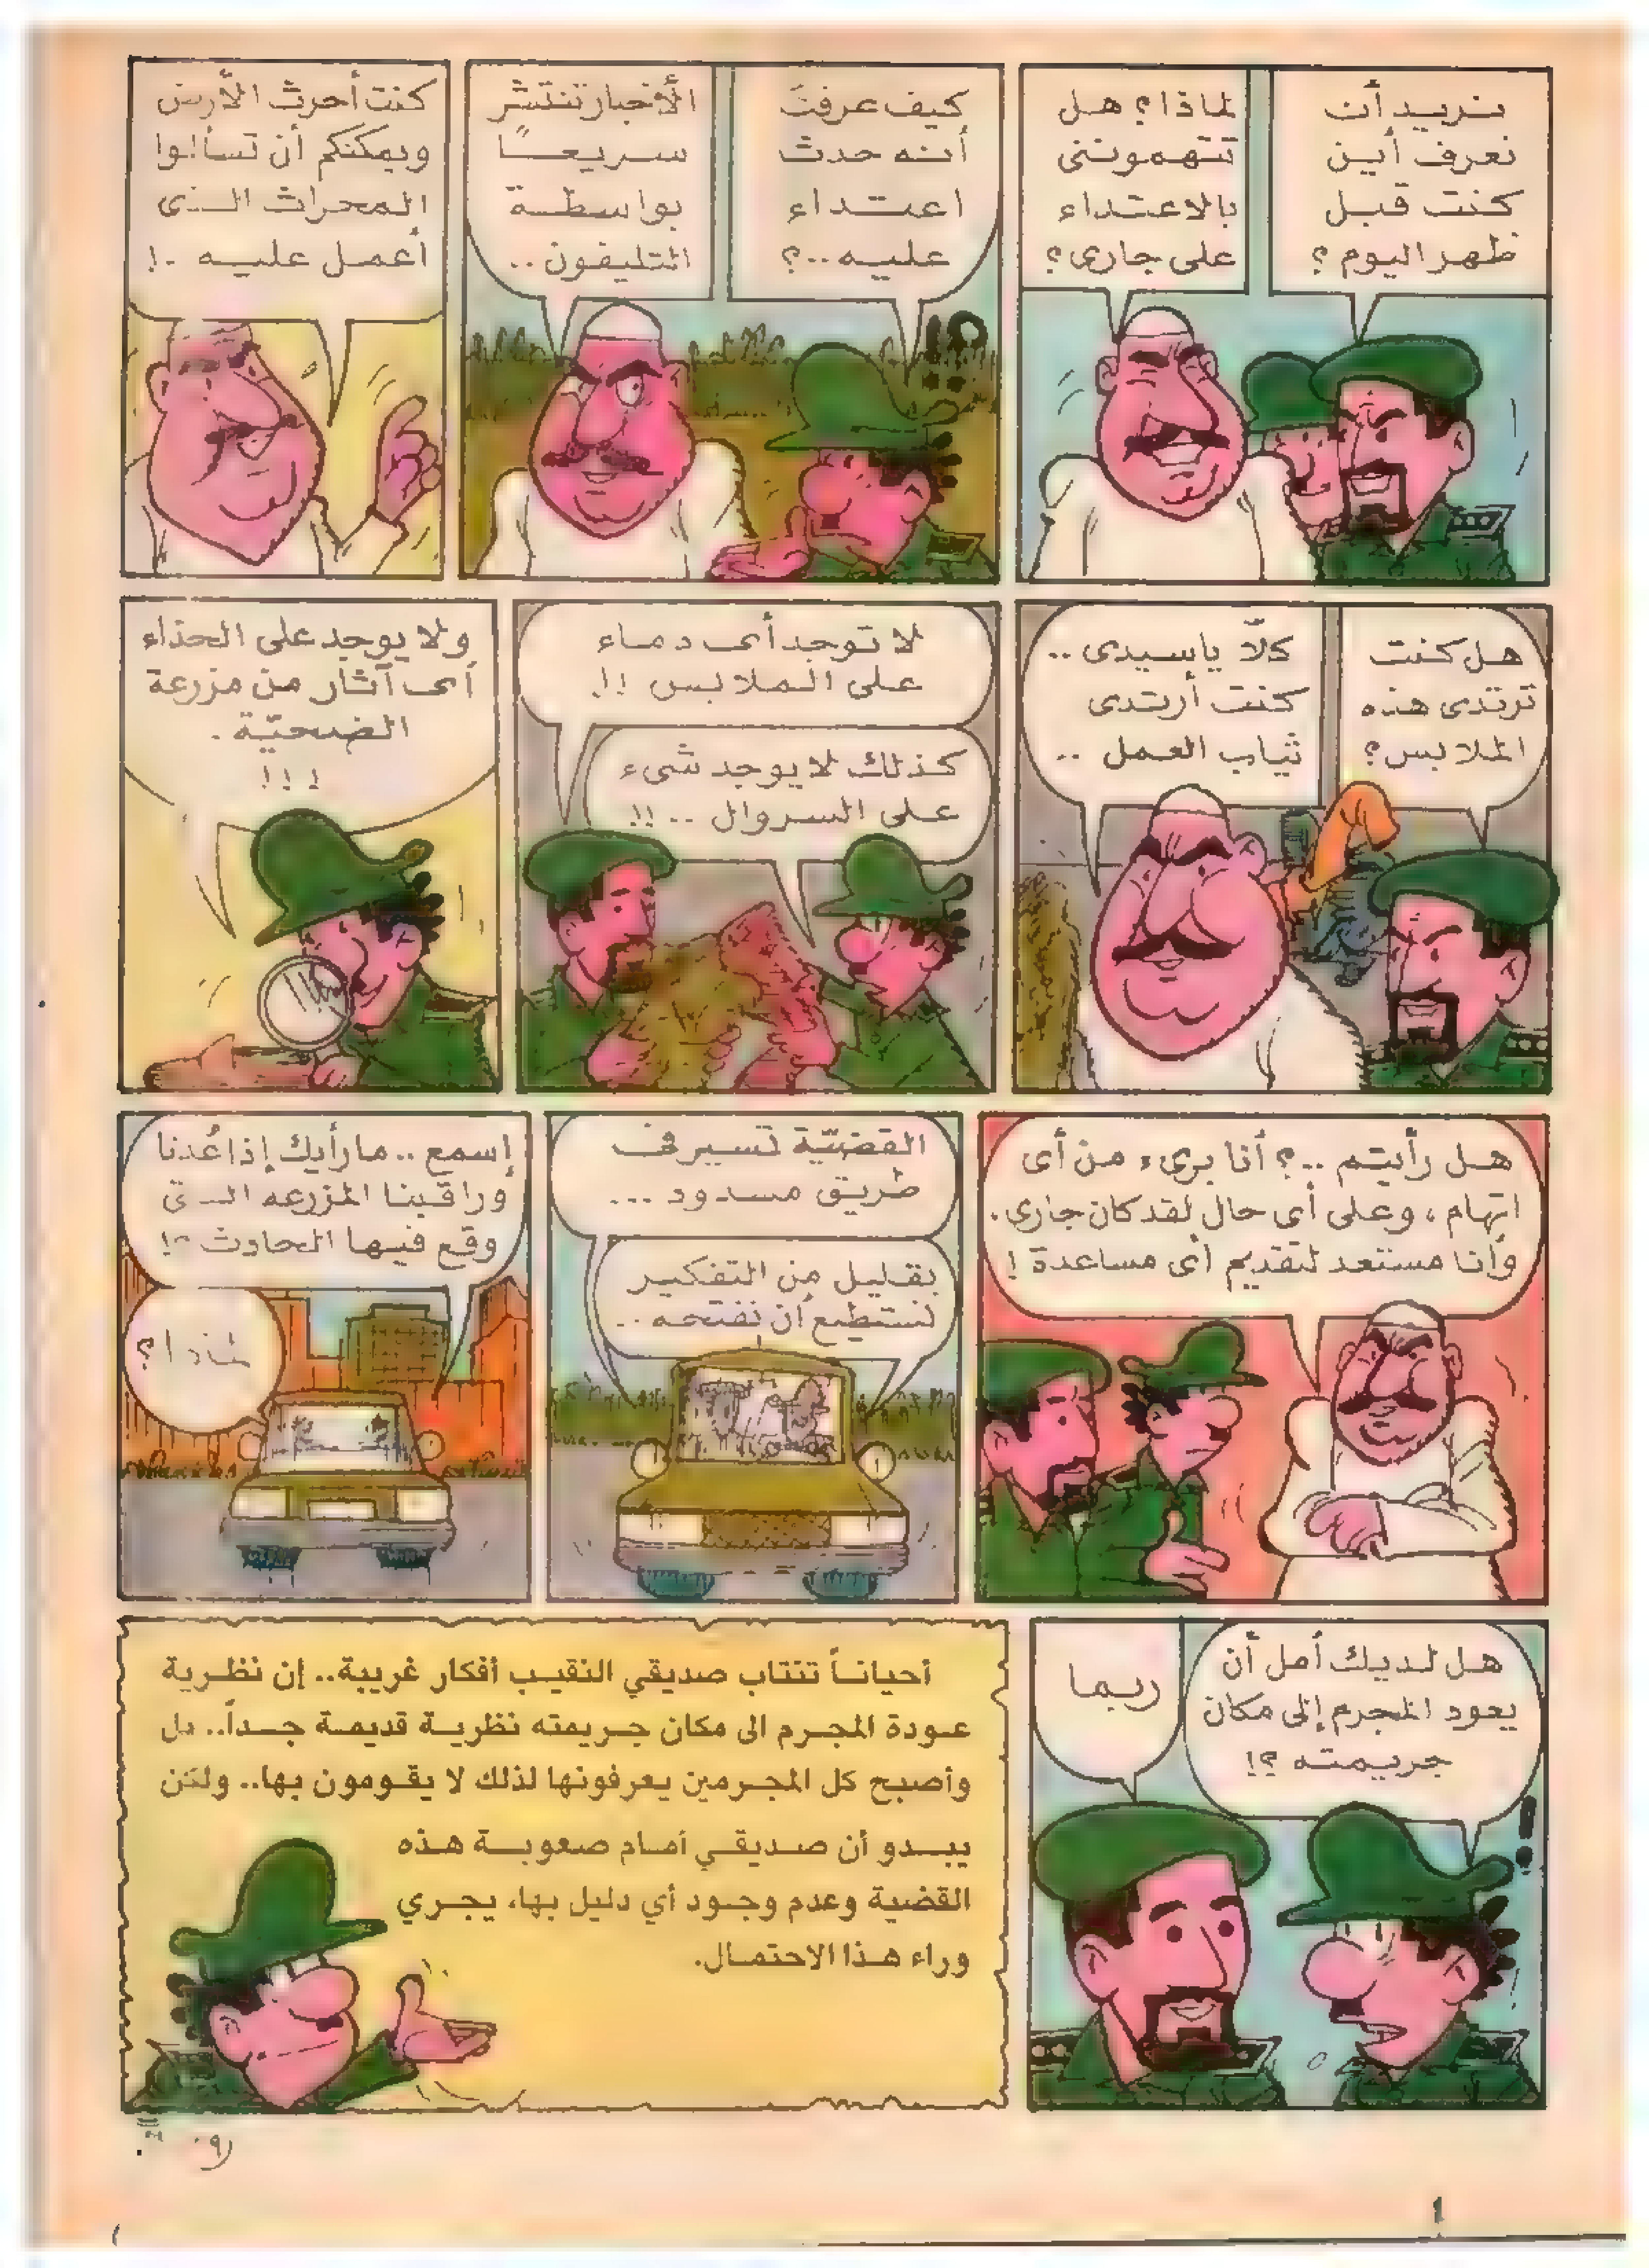 نريد أن
نعرف أين
كنت قبل
ظهر اليوم ؟
لماذا ؟ هل
تتهموننى
بالاعتداء
على جارى ؟
كيف عرفت
أنه حدث
اعتداء
عليه ..؟
الأخبار تنتشر
سريعًا
بواسطة
التليفون ..
كنت أحرث الأرض
ويمكنكم أن تسألوا
المحراث الذى
أعمل عليه .!
هل كنت
ترتدى هذه
الملابس ؟
كلّا ياسيدى ..
كنت أرتدى
ثياب العمل ..
لا توجد أى دماء
على الملابس !!
كذلك لا يوجد شىء
على السروال .. !!
ولا يوجد على الحذاء
أى آثار من مزرعة
الضحيّة .
! ! !
هل رأيتم ..؟ أنا برىء من أى
اتهام ، وعلى أى حال لقد كان جارى .
وأنا مستعد لتقديم أى مساعدة !
القضيّة تسير فى
طريق مسدود ...
بقليل من التفكير
نستطيع أن نفتحه ..
إسمع .. ما رأيك إذا عُدنا
وراقبنا المزرعه التى
وقع فيها الحادث ؟!
لماذا ؟
هل لديك أمل أن
يعود المجرم إلى مكان
جريمته ؟!
ربما
أحياناً تنتاب صديقي النقيب أفكار غريبة.. إن نظرية
عودة المجرم الى مكان جريمته نظرية قديمة جداً.. بل
وأصبح كل المجرمين يعرفونها لذلك لا يقومون بها.. ولكن
يبدو أن صديقي أمام صعوبة هذه
القضية وعدم وجود أي دليل بها، يجري
وراء هذا الاحتمال.